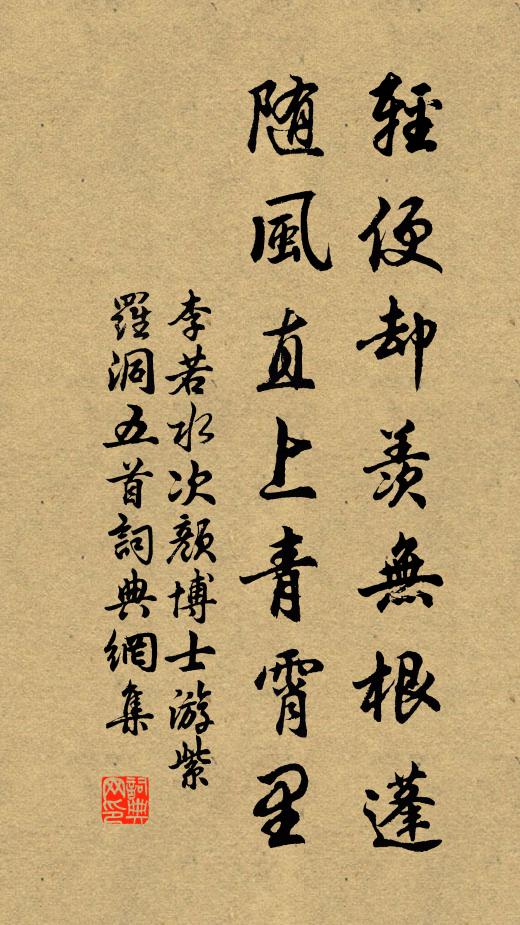 輕便却羨無根蓬
随風直上青霄里
李若水次顏博士游紫
羅洞五首詞典網集
詞典网印